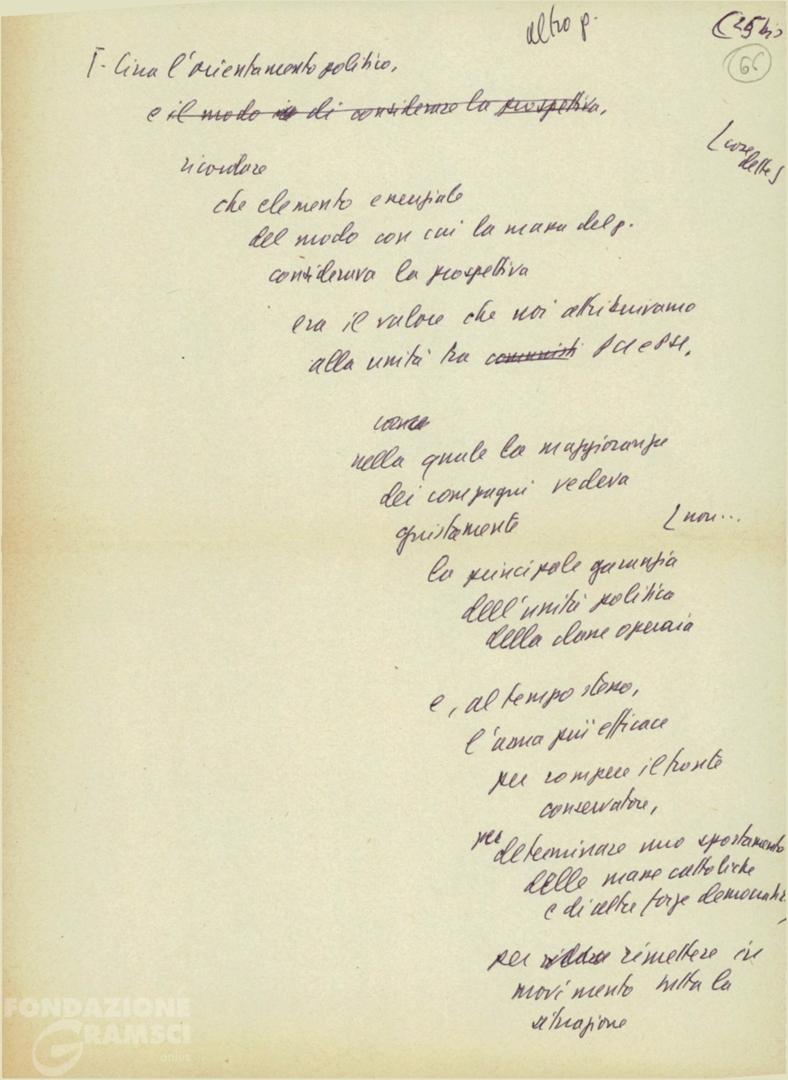 altro p.
(25 bis
66
I- Circa l'orientamento politico,
e il modo di considerare la prospettiva,
[cose
dette]
ricordare
che elemento essenziale
del modo con cui la massa del p.
considerava la prospettiva
era il valore che noi attribuivamo
alla unità tra comunisti PCI e PSI,
nella quale la maggioranza
dei compagni vedeva
giustamente
[non...
la principale garanzia
dell'unità politica
della classe operaia
e, al tempo stesso,
l'arma più efficace
per rompere il fronte
conservatore,
per determinare uno spostamento
delle masse cattoliche
e di altre forze democratiche,
per rimettere in
movimento tutta la
situazione
FONDAZIONE
GRAMSCI
onlus